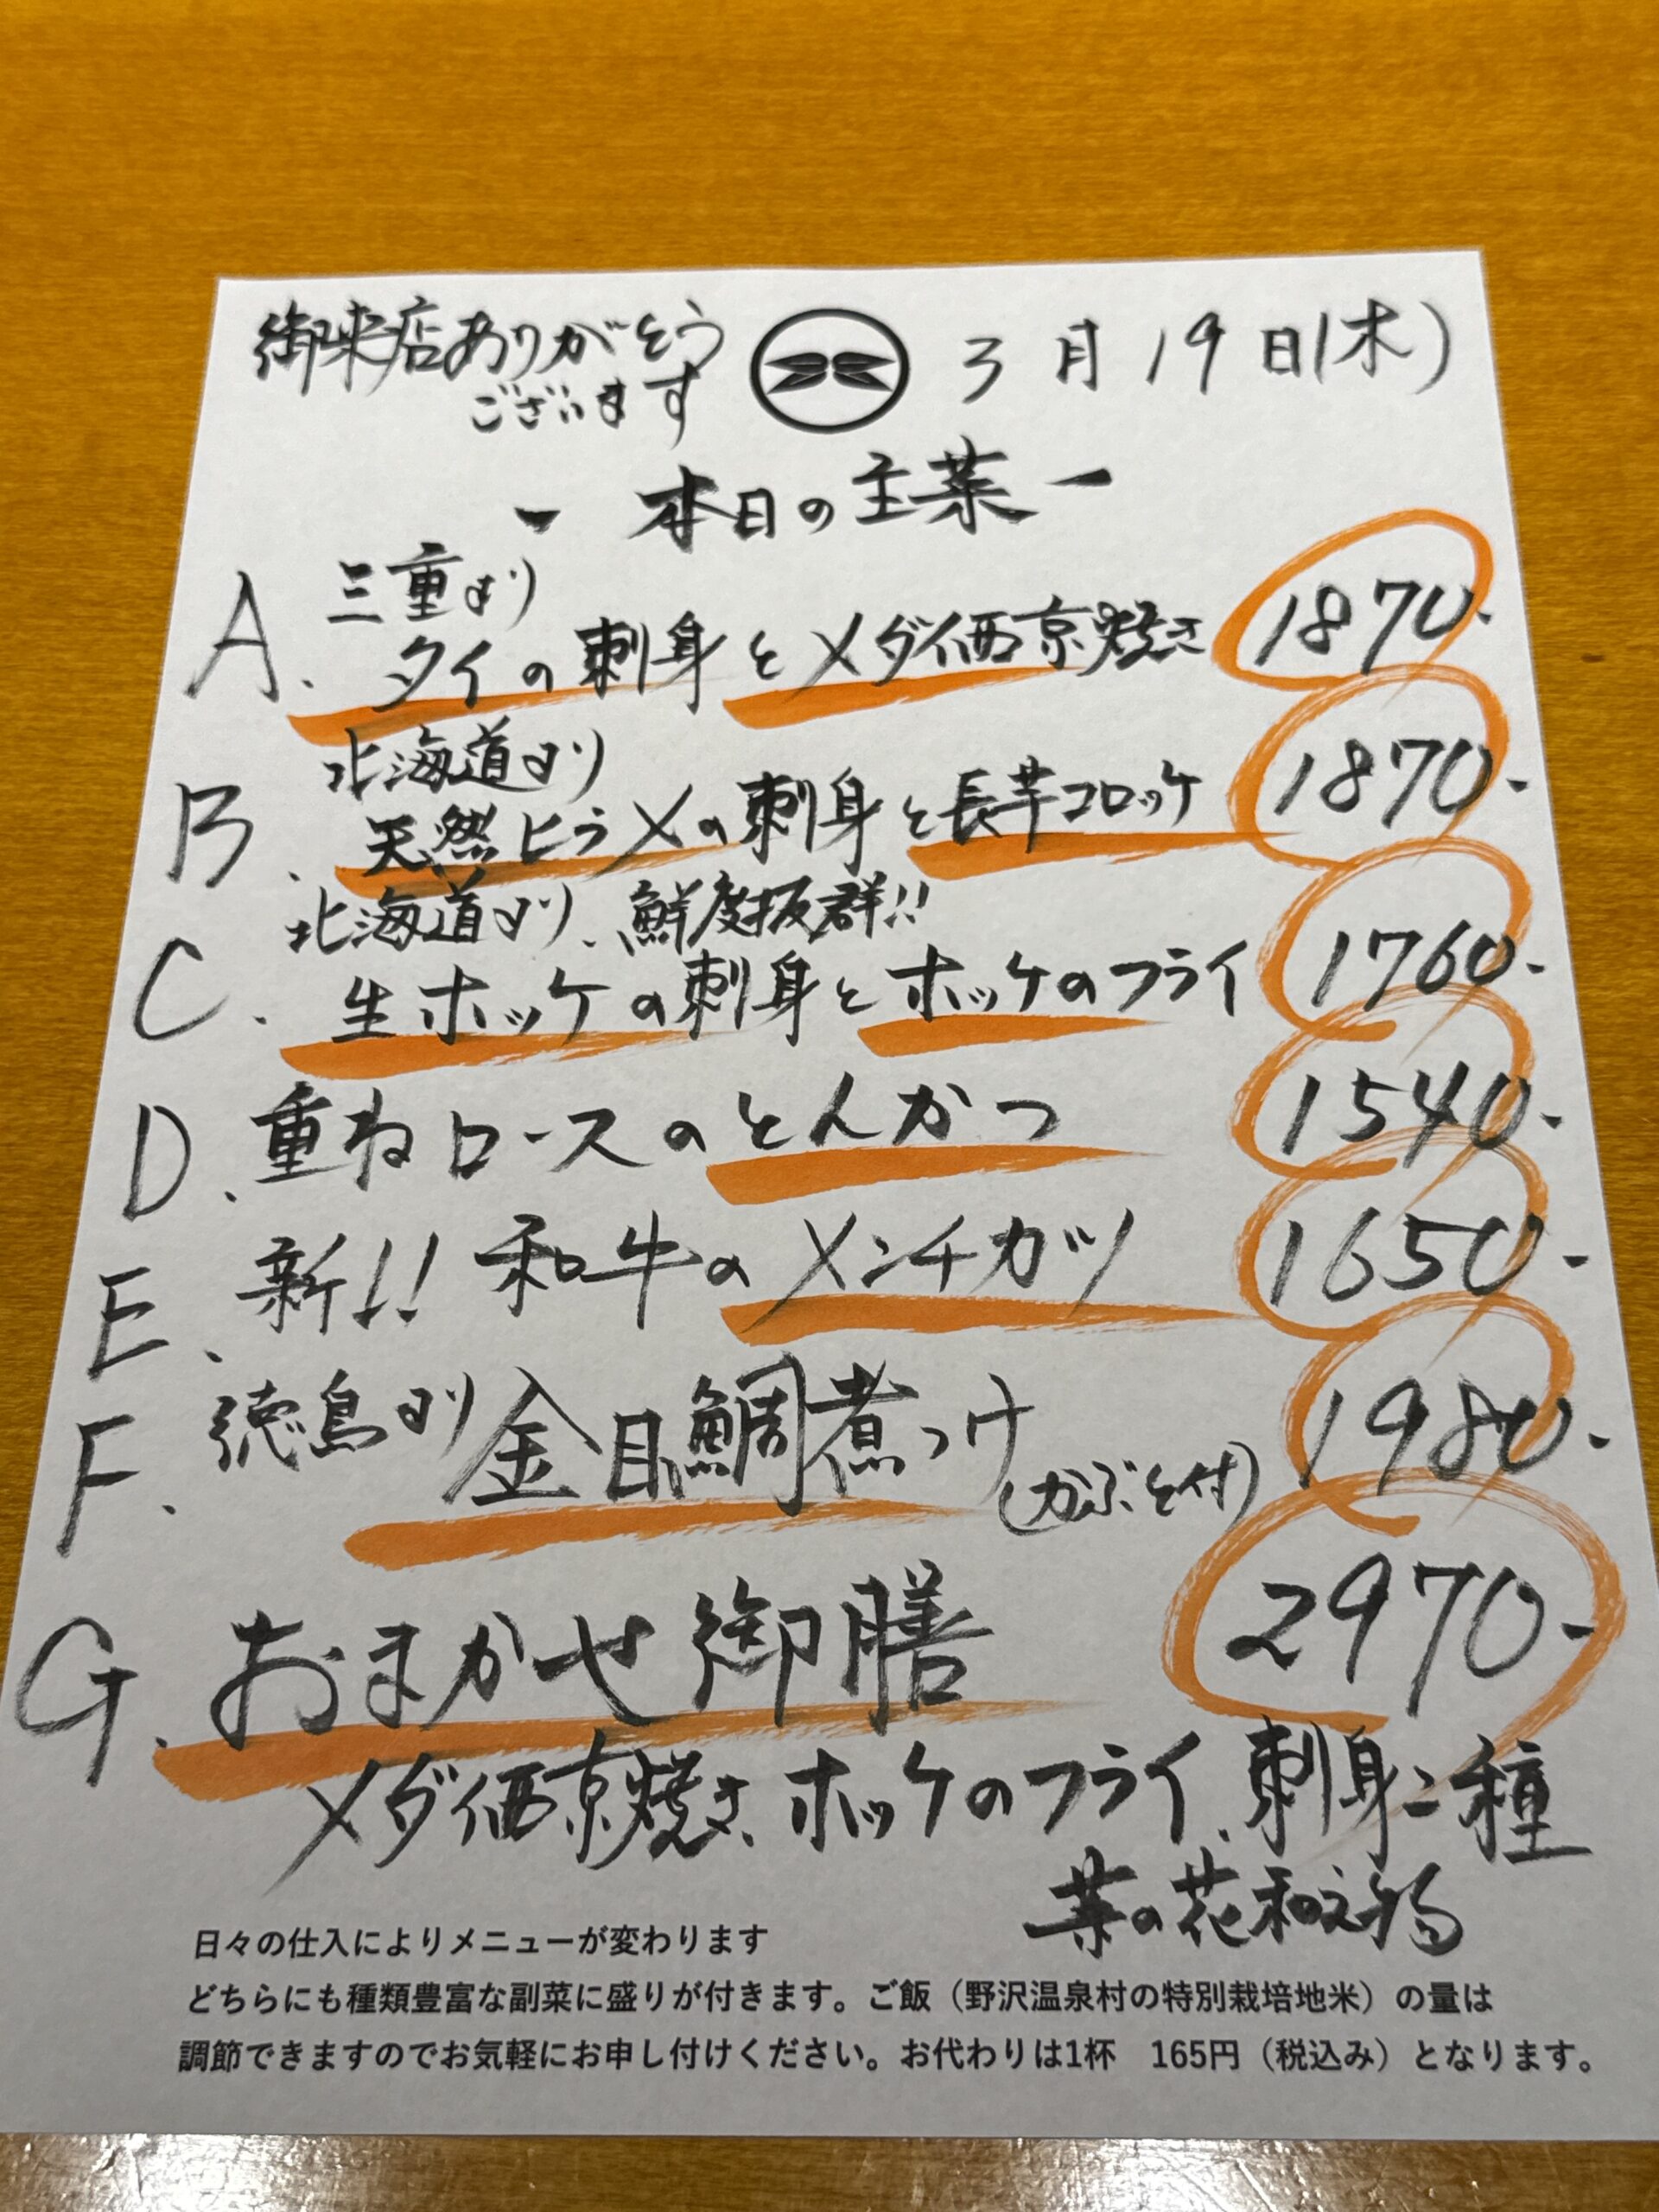 御来店ありがとう
ございます
3月19日(木)
- 本日の主菜 -
三重より
A. タイの刺身とメダイ西京焼き 1870-
北海道より
B. 天然ヒラメの刺身と長芋コロッケ 1870-
北海道より、鮮度抜群!!
C. 生ホッケの刺身とホッケのフライ 1760-
D. 重ねロースのとんかつ 1540-
E. 新!! 和牛のメンチカツ 1650-
F. 徳島より 金目鯛煮つけ (かぶと付) 1980-
G. おまかせ御膳 2970-
メダイ西京焼き、ホッケのフライ、刺身二種
菜の花
日々の仕入によりメニューが変わります
どちらにも種類豊富な副菜に盛りが付きます。ご飯（野沢温泉村の特別栽培地米）の量は
調節できますのでお気軽にお申し付けください。お代わりは1杯　165円（税込み）となります。